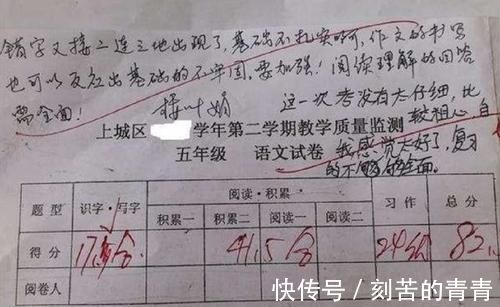 错字又接二连三地出现了,基础不扎实啊,作文的书写
也可以反应出基础的不牢固,要加强!阅读理解的回答
需全面!
这一次考没有太仔细,比
较粗心自
我感觉太好了,复习
的不够全面。
上城区 学年第二学期教学质量监测
五年级 语文试卷
题型 识字·写字 阅读·积累 习作 总分
积累一 积累二 阅读一 阅读二
得分 41.5分 24分 82
阅卷人
快传号/刻苦的青青